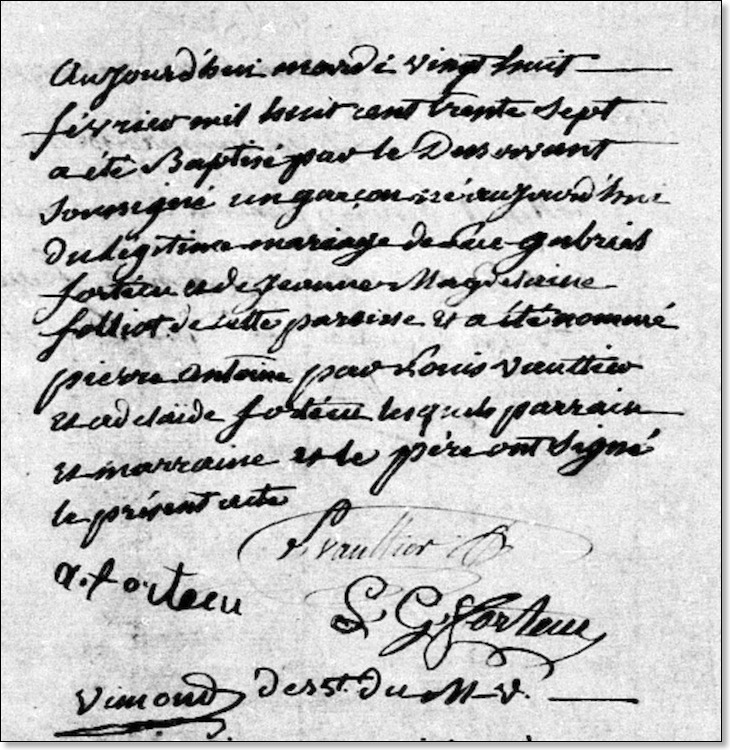 Aujourd'hui mardi vingt huit
février mil huit cent trente sept
a été Baptisé par le Desservant
soussigné un garçon né aujourd'hui
du légitime mariage de Luc gabriel
fortécu et de Jeanne Magdelaine
folliot de cette paroisse et a été nommé
pierre antoine par Louis vaultier
et adelaide fortécu lesquels parrain
et marraine et le père ont signé
le présent acte
L vaultier
a. fortecu
L G fortecu
vimond des st. du M V.